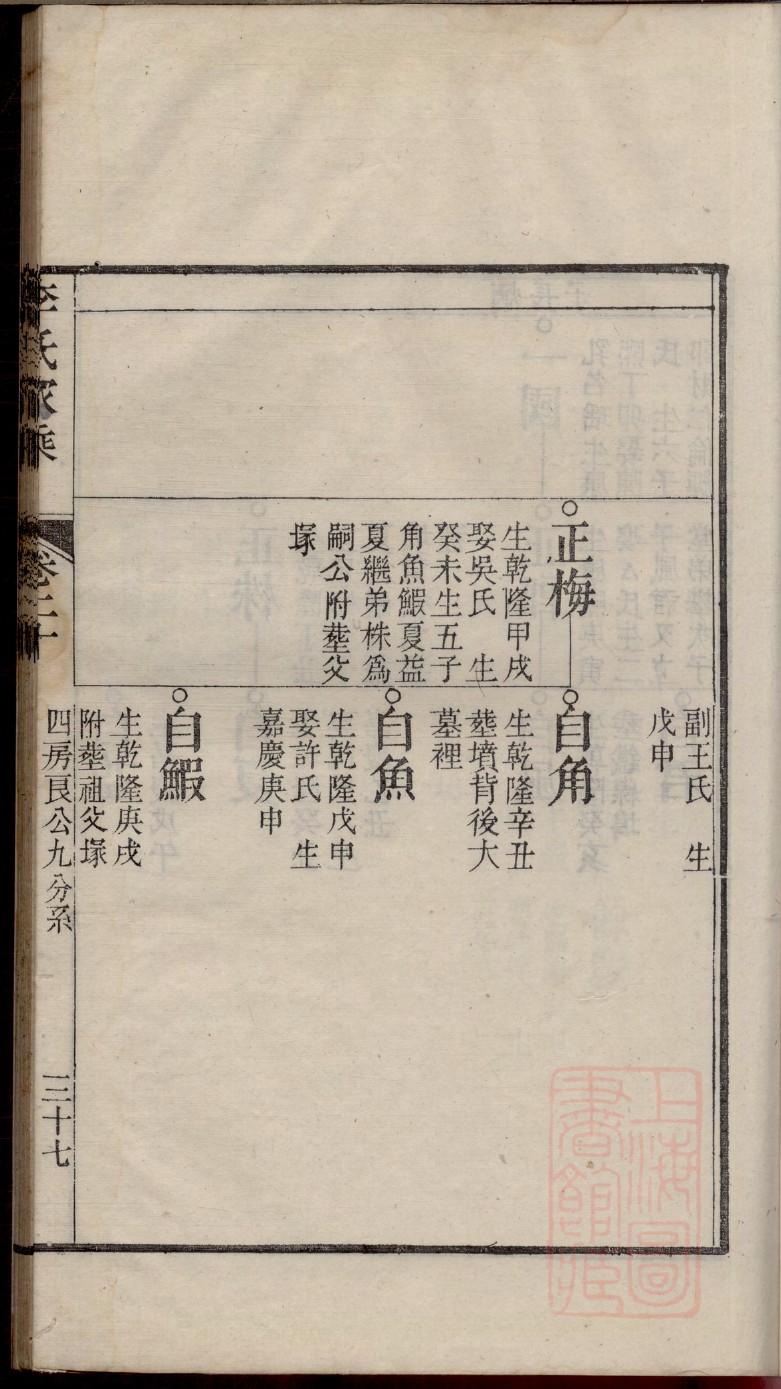 副王氏　生
戊申
正梅
生乾隆甲戌
娶吳氏　生
癸未生五子
角魚鰕夏益
夏繼弟株為
嗣公附塟父
塚
自角
生乾隆辛丑
塟墳背後大
墓裡
自魚
生乾隆戊申
娶許氏　生
嘉慶庚申
自鰕
生乾隆庚戌
附塟祖父塚
李氏家乘
卷二十
四房良公九分系
三十七
上海圖
書館藏